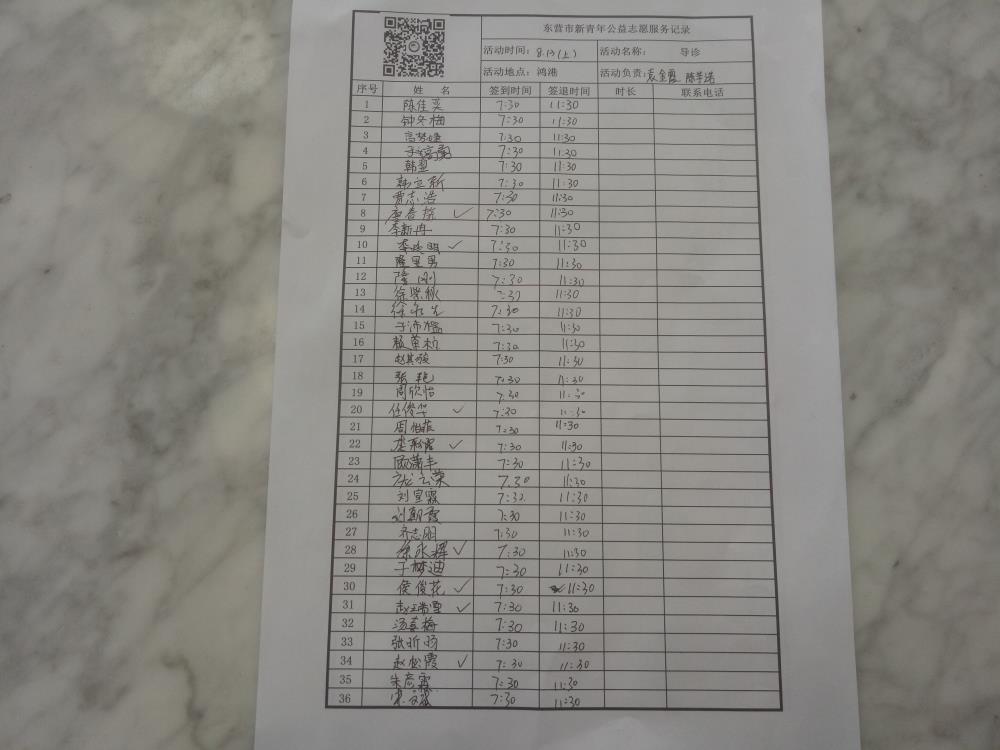 东营市新青年公益志愿服务记录
活动时间：8.13(上) 活动名称： 导诊
活动地点：鸿港 活动负责：袁金霞
序号 姓 名 签到时间 签退时间 时长 联系电话
1 陈佳奕 7:30 11:30
2 钟冬梅 7:30 11:30
3 高梦婕 7:30 11:30
4 7:30 11:30
5 韩翌 7:30 11:30
6 韩立新 7:30 11:30
7 贾志浩 7:30 11:30
8 ✓ 7:30 11:30
9 李新冉 7:30 11:30
10 ✓ 7:30 11:30
11 隆昱男 7:30 11:30
12 隆刚 7:30 11:30
13 7:30 11:30
14 7:30 11:30
15 7:30 11:30
16 7:30 11:30
17 赵其骏 7:30 11:30
18 张艳 7:30 11:30
19 周欣怡 7:30 11:30
20 任俊华 ✓ 7:30 11:30
21 7:30 11:30
22 ✓ 7:30 11:30
23 7:30 11:30
24 7:30 11:30
25 刘宣霖 7:30 11:30
26 刘朝霞 7:30 11:30
27 齐志朋 7:30 11:30
28 徐永辉 ✓ 7:30 11:30
29 于梦迪 7:30 11:30
30 侯俊花 ✓ 7:30 11:30
31 赵瑞雪 ✓ 7:30 11:30
32 汤春梅 7:30 11:30
33 张昕扬 7:30 11:30
34 ✓ 7:30 11:30
35 朱彦霖 7:30 11:30
36 7:30 11:30